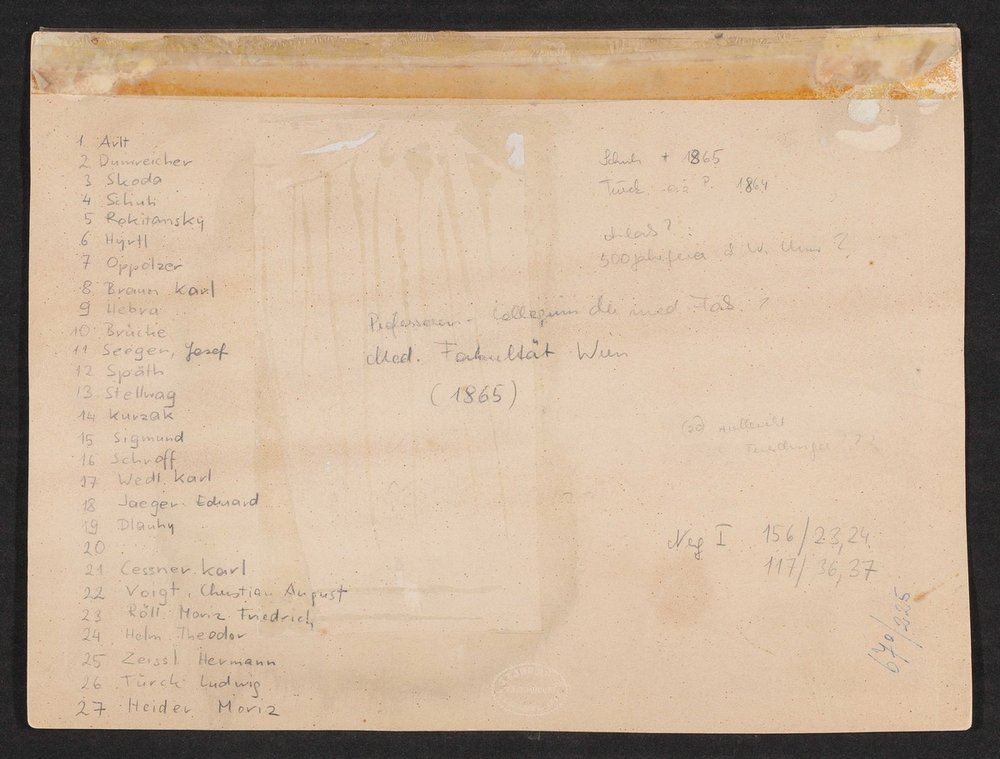 1 Arlt
2 Dumreicher
3 Skoda
4 Schuh
5 Rokitansky
6 Hyrtl
7 Oppolzer
8 Braun Karl
9 Hebra
10 Brücke
11 Seeger, Josef
12 Späth
13 Stellwag
14 Kurzak
15 Sigmund
16 Schroff
17 Wedl Karl
18 Jaeger Eduard
19 Dlauhy
20
21 Cessner Karl
22 Voigt, Christian August
23 Röll Moriz Friedrich
24 Helm Theodor
25 Zeissl Hermann
26 Türck Ludwig
27 Heider Moriz
Schuh + 1865
Türck ? 1864
?
500 Jahrfeier d W. Univ ?
Professoren - Collegium der med Fak ?
Med. Fakultät Wien
(1865)
(20)
? ?
Neg I 156/23,24
117/36,37
670/225